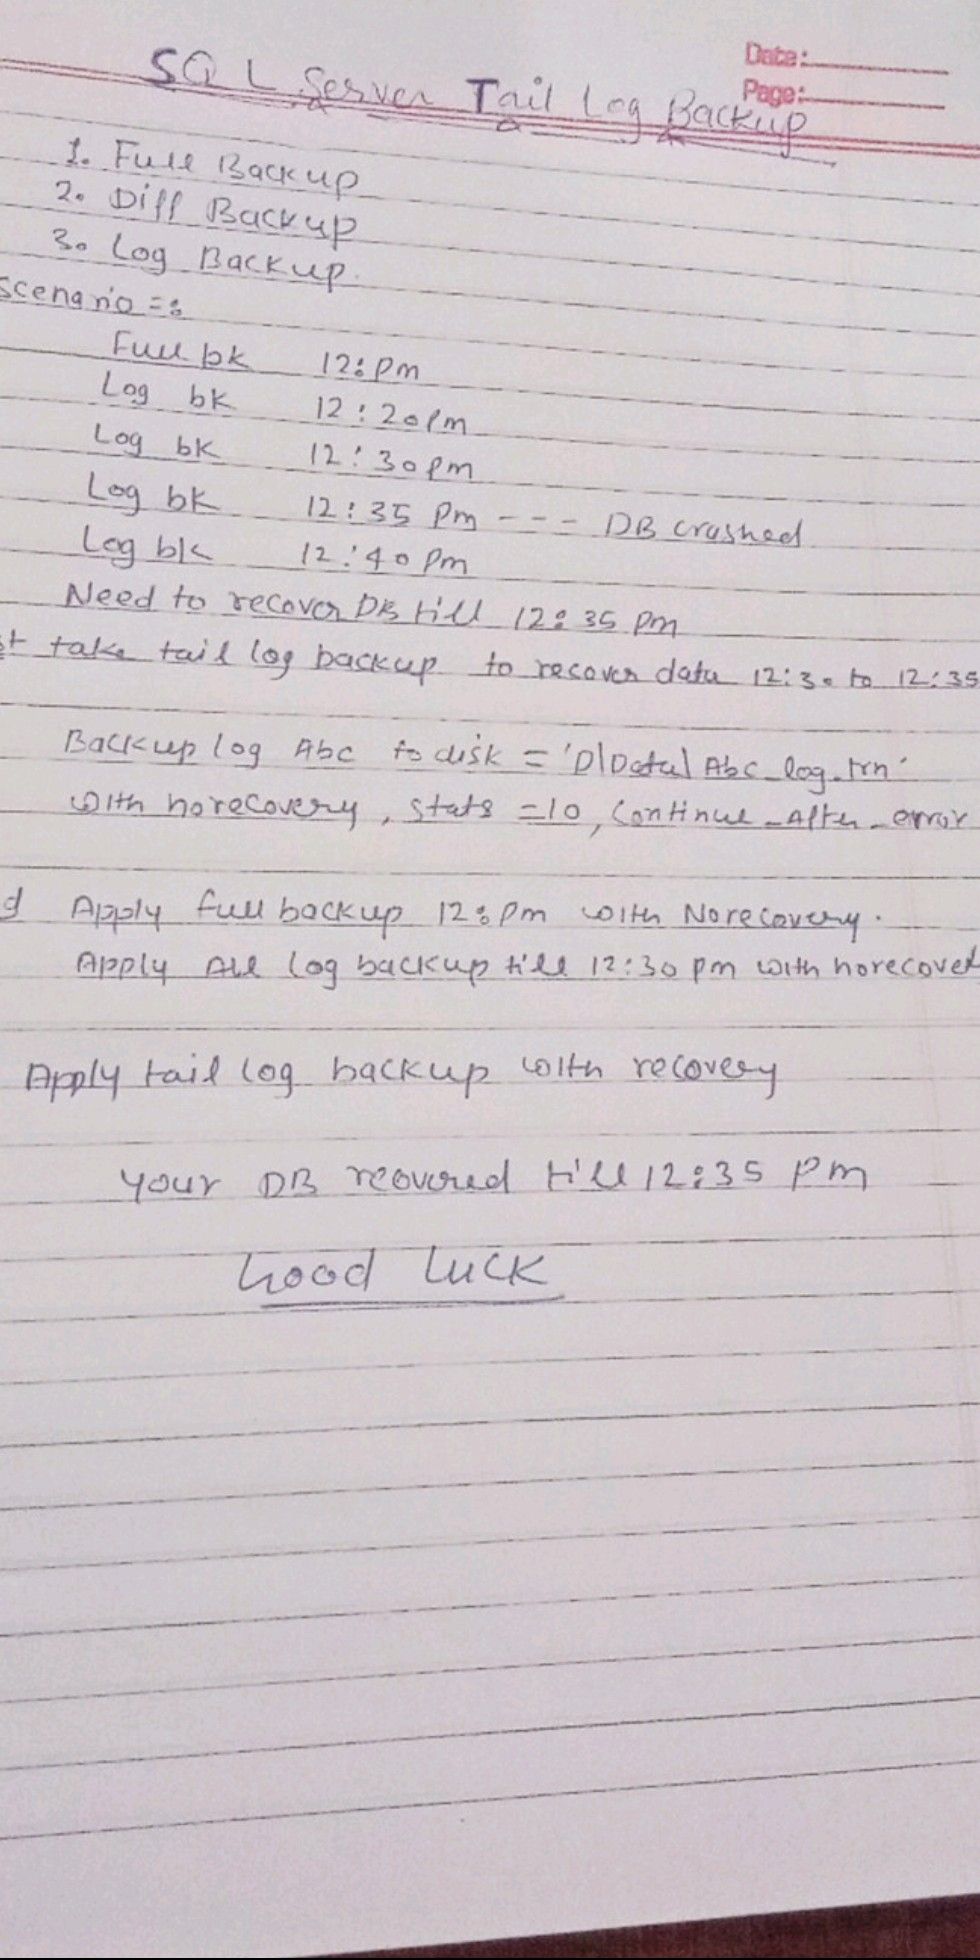 Date:
Page:
SQL Server Tail Log Backup
1. Full Backup
2. Diff Backup
3. Log Backup.
Scenario =:
Full bk 12: pm
Log bk 12:20pm
Log bk 12:30pm
Log bk 12:35 Pm --- DB crashed
Log bk 12:40 pm
Need to recover DB till 12:35 pm
st take tail log backup to recover data 12:30 to 12:35
Backup log Abc to disk = 'D|Data| Abc_log.trn'
with norecovery, stats =10, Continue_After_error
d Apply full backup 12: pm with Norecovery.
Apply All log backup till 12:30 pm with norecover
Apply tail log backup with recovery
your DB reovered till 12:35 pm
Good Luck